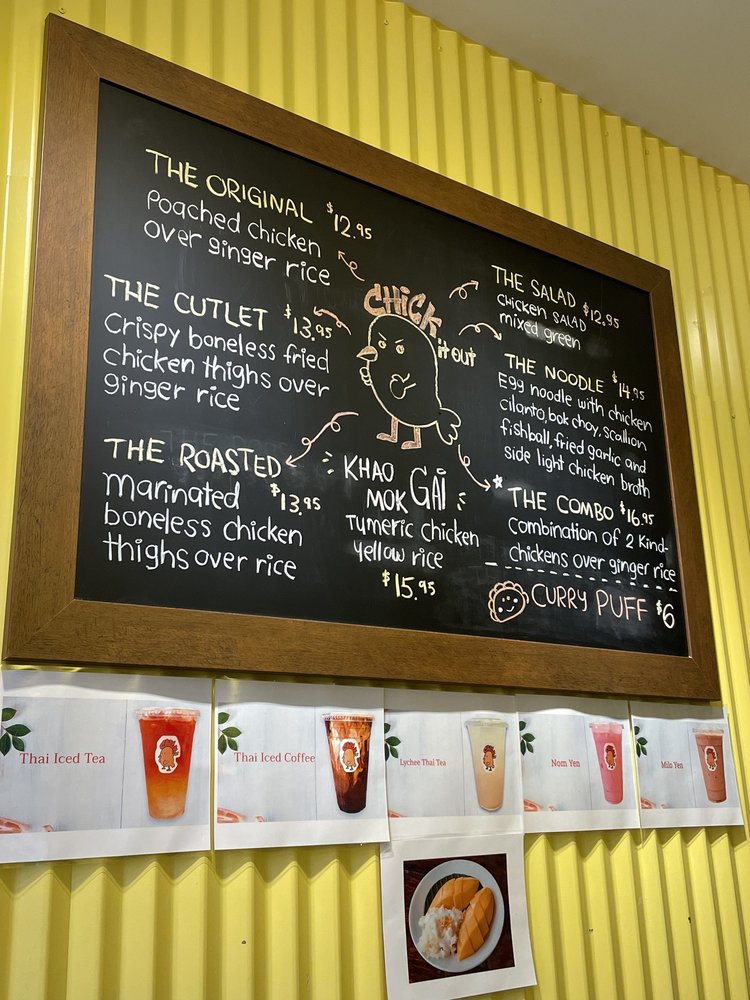 THE ORIGINAL $12.95
Poached chicken
over ginger rice
THE CUTLET $13.95
Crispy boneless fried
chicken thighs over
ginger rice
THE ROASTED
Marinated $13.95
boneless chicken
thighs over rice
CHiCK
it out
KHAO
MOK GAi
Tumeric chicken
yellow rice
$15.95
THE SALAD $12.95
CHICKEN SALAD
mixed green
THE NOODLE $14.95
Egg noodle with chicken
cilanto, bok choy, scallion
fishball, fried garlic and
side light chicken broth
THE COMBO $16.95
Combination of 2 Kind-
chickens over ginger rice
CURRY PUFF $6
Thai Iced Tea
Thai Iced Coffee
Lychee Thai Tea
Nom Yen
Milo Yen